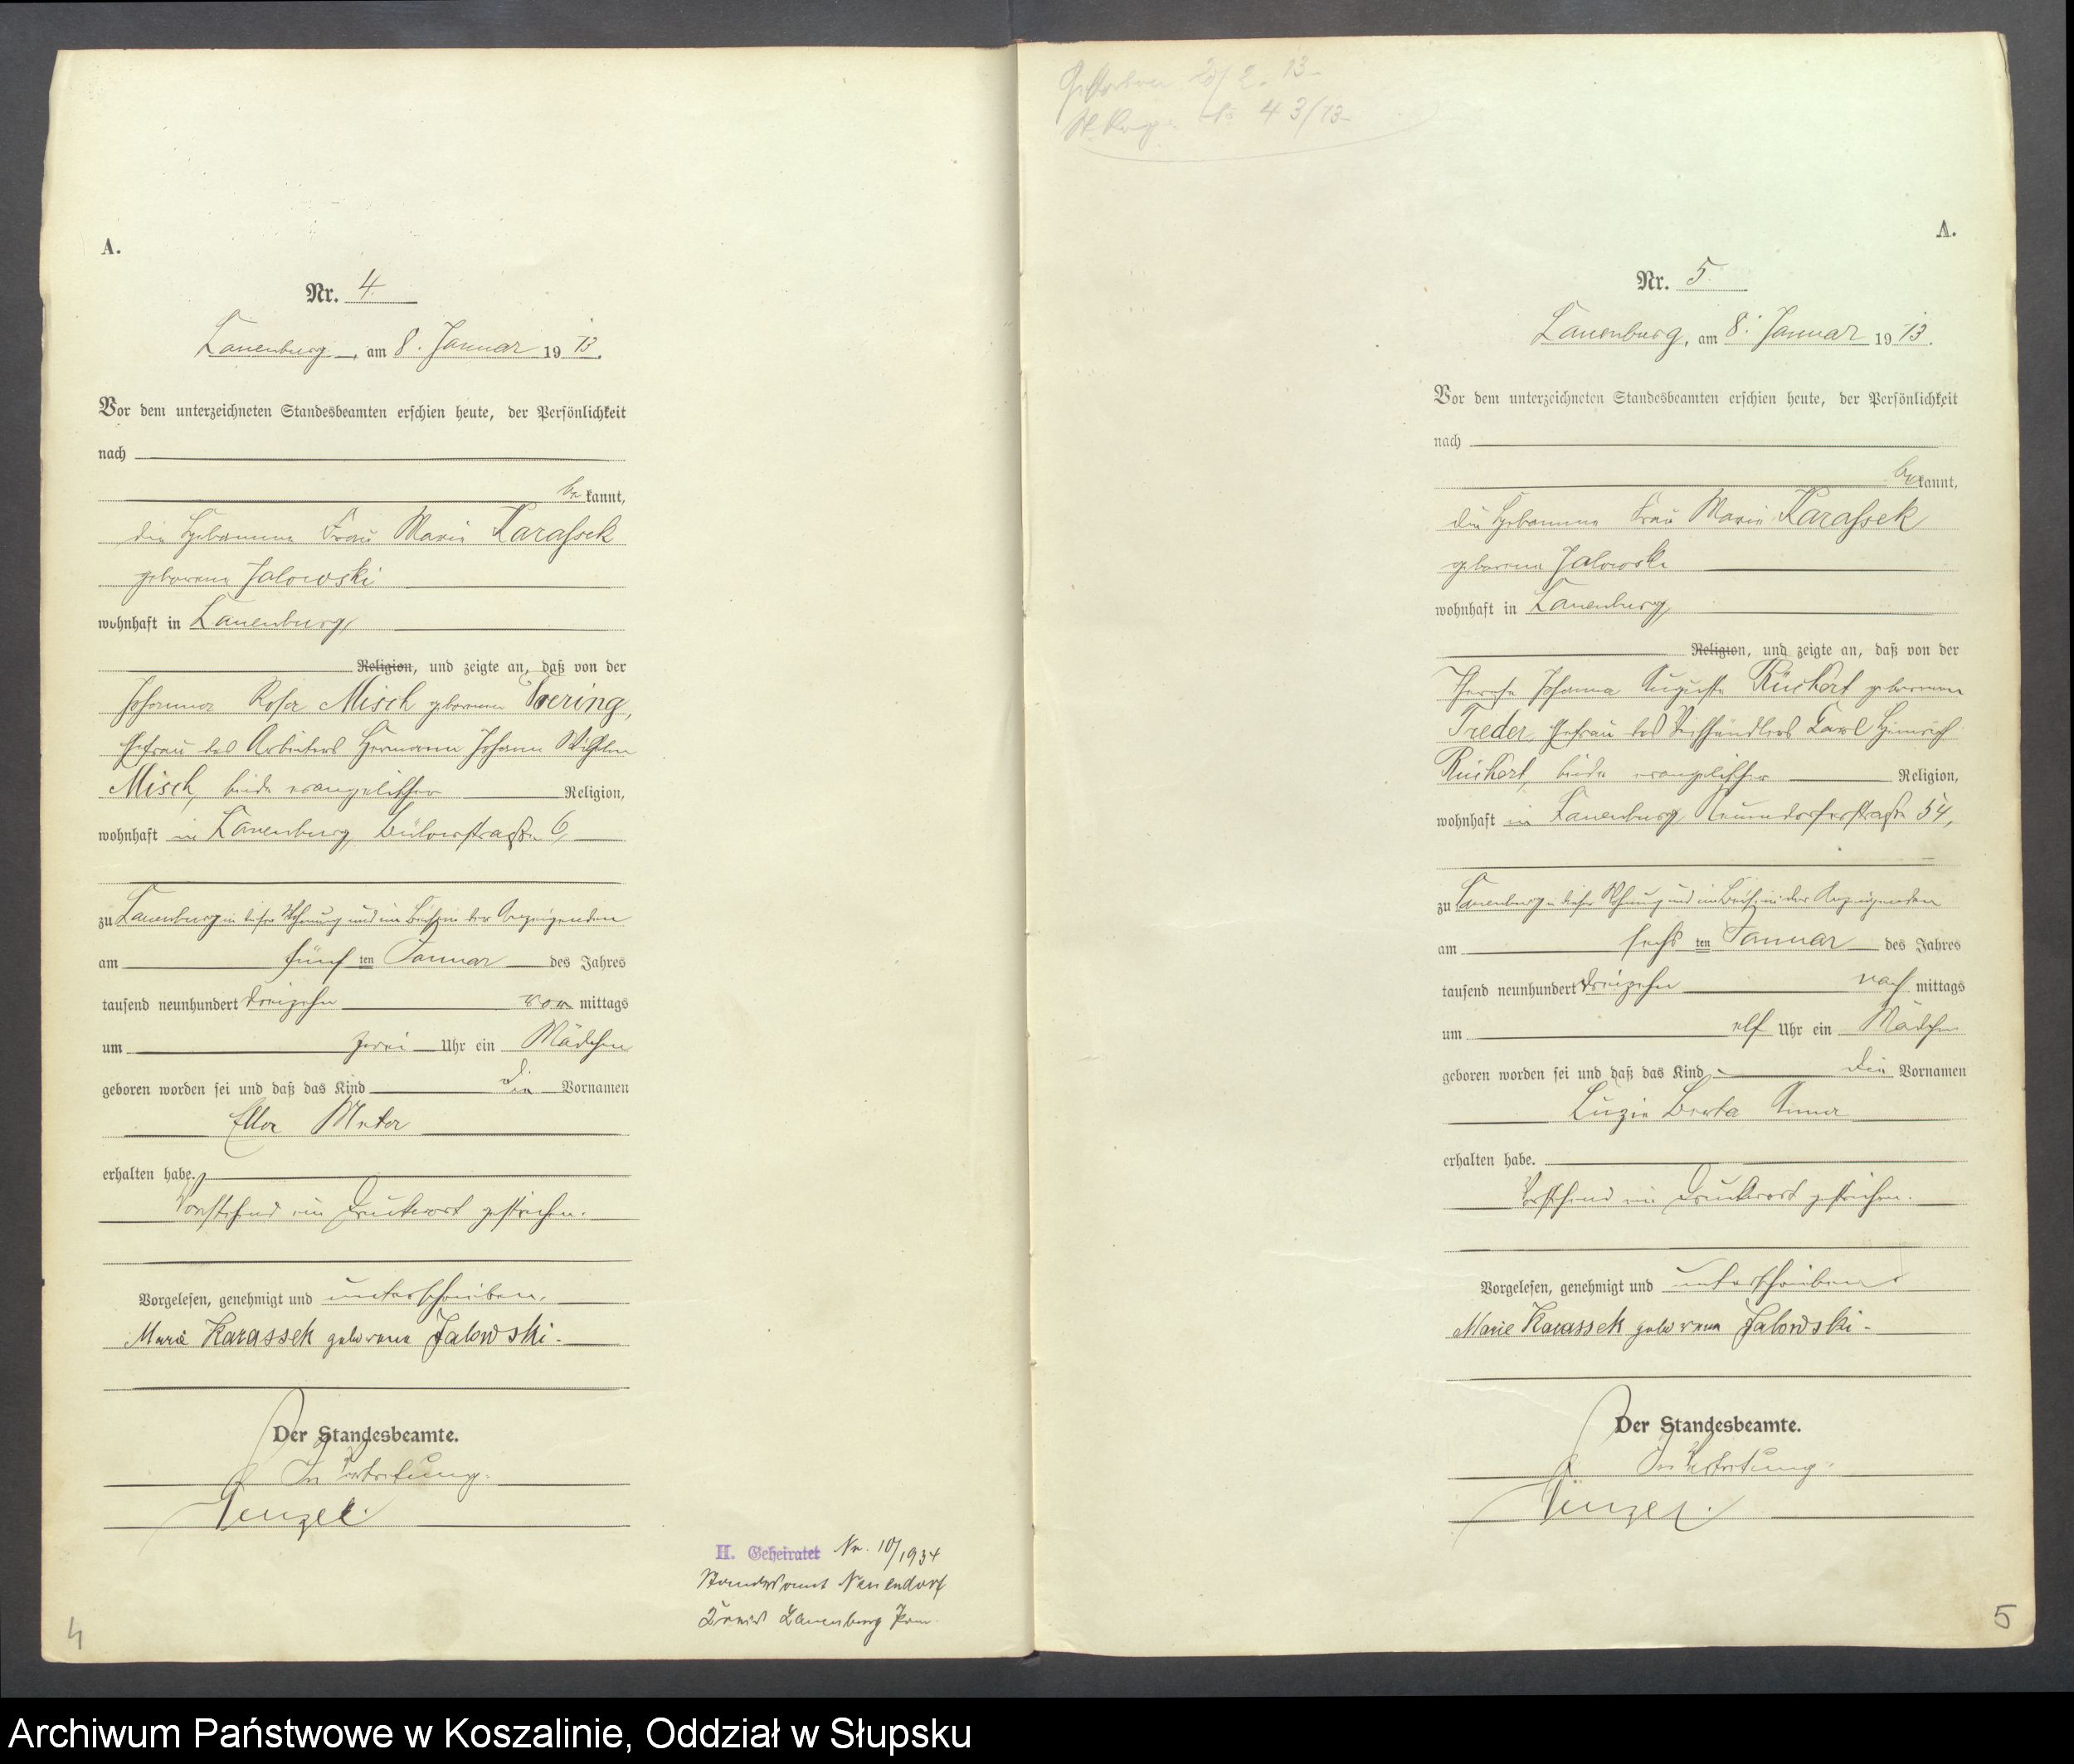 A.
Nr. 4.
Lauenburg, am 8. Januar 1913.
Vor dem unterzeichneten Standesbeamten erschien heute, der Persönlichkeit
nach
be kannt,
die Hebamme Frau Marie Karassek
geborene Jalowski
wohnhaft in Lauenburg,
Religion, und zeigte an, daß von der
Johanna Rosa Misch geborenen Doering,
Ehefrau des Arbeiters Hermann Johann Wilhelm
Misch, beide evangelischer Religion,
wohnhaft in Lauenburg, Bülowstraße 6,
zu Lauenburg in dieser Wohnung und im Beisein der Anzeigenden
am fünf ten Januar des Jahres
tausend neunhundert dreizehn vor mittags
um zwei Uhr ein Mädchen
geboren worden sei und daß das Kind die Vornamen
Ella Meta
erhalten habe.
Vorstehend ein Druckwort gestrichen.
Vorgelesen, genehmigt und unterschrieben.
Marie Karassek geborene Jalowski.
Der Standesbeamte.
In Vertretung.
H. Geheiratet Nr. 10/1934
Standesamt Neuendorf
Kreis Lauenburg Pom.
4
Gestorben 20/2. 13
St. Reg. No 43/13
A.
Nr. 5.
Lauenburg, am 8. Januar 1913.
Vor dem unterzeichneten Standesbeamten erschien heute, der Persönlichkeit
nach
be kannt,
die Hebamme Frau Marie Karassek
geborene Jalowski
wohnhaft in Lauenburg,
Religion, und zeigte an, daß von der
Therese Johanna Auguste Rückert geborenen
Treder, Ehefrau des Viehhändlers Karl Heinrich
Rückert, beide evangelischer Religion,
wohnhaft in Lauenburg, Neuendorferstraße 54,
zu Lauenburg in dieser Wohnung und im Beisein der Anzeigenden
am sechs ten Januar des Jahres
tausend neunhundert dreizehn nach mittags
um elf Uhr ein Mädchen
geboren worden sei und daß das Kind die Vornamen
Luzie Berta Anna
erhalten habe.
Vorstehend ein Druckwort gestrichen.
Vorgelesen, genehmigt und unterschrieben.
Marie Karassek geborene Jalowski.
Der Standesbeamte.
In Vertretung.
5
Archiwum Państwowe w Koszalinie, Oddział w Słupsku